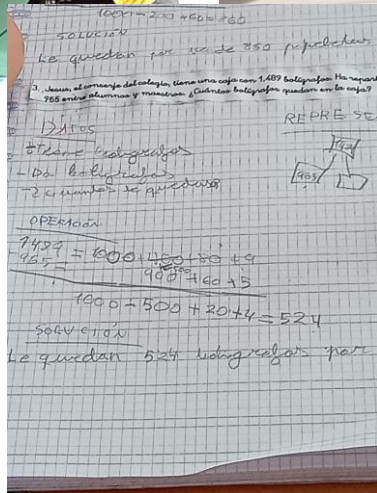 1000 - 200 + 600 + 60
SOLUCIÓN
Le quedan por de 850
3. Jesus, el conserje del colegio, tiene una caja con 1.489 bolígrafos. Ha repart
965 entre alumnos y maestros. ¿Cuántos bolígrafos quedan en la caja?
DATOS
REPRESE
tiene bolígrafos
- Da Boligrafos
- 2 cuantos le quedan
965
OPERACIÓN
1489 = 1000 + 400 + 80 + 9
- 965 = 900 + 60 + 5
1000 - 500 + 20 + 4 = 524
SOLUCIÓN
Le quedan 524 boligrafos por